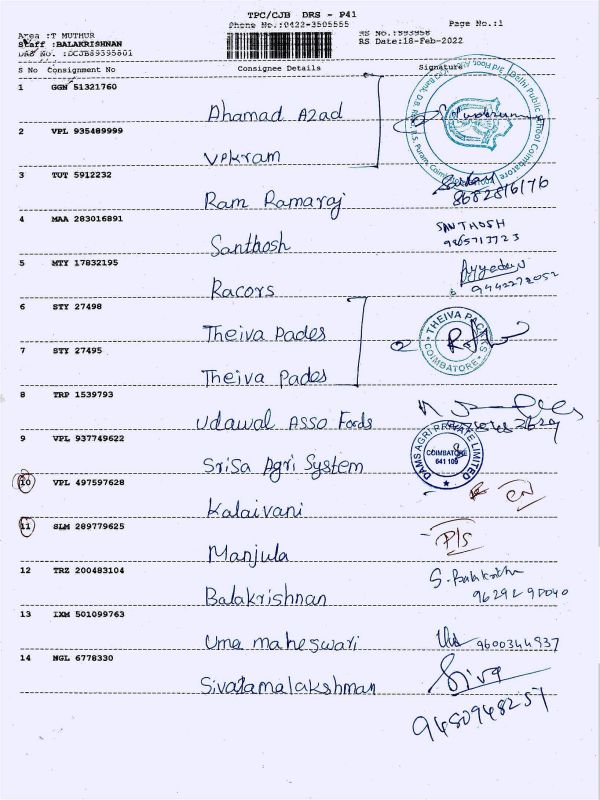 TPC/CJB DRS - P41
Phone No.:0422-3505555
Page No.:1
Area :T MUTHUR
Staff :BALAKRISHNAN
RS No.:593958
RS Date:18-Feb-2022
S No Consignment No Consignee Details Signature
1 GGN 51321760 Ahamad Azad
2 VPL 935489999 Vpkram
3 TUT 5912232 Ram Ramaraj
8682816176
4 MAA 283016891 Santhosh SANTHOSH
9865713723
5 MTY 17832195 Racors
9442272052
6 STY 27498 Theiva Pades
THEIVA PACKS COIMBATORE
7 STY 27495 Theiva Pades
8 TRP 1539793 Udawal Asso Foods
9 VPL 937749622 Srisa Agri System
DAMS AGRI PRIVATE LIMITED
COIMBATORE
641 109
10 VPL 497597628 Kalaivani
11 SLM 289779625 Manjula P/S
12 TRZ 200483104 Balakrishnan S. Balakrishn
13 IXM 501099763 Uma maheswari 9600344937
14 NGL 6778330 Sivatamalakshman Siva
9480948257
Delhi Public School Coimbatore